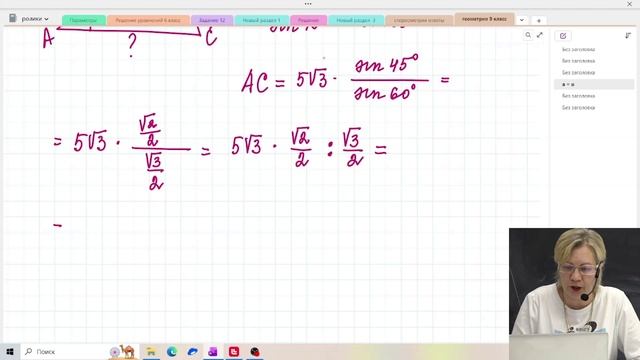 ролики
Параметры
Решение уравнений 6 класс
Задание 12
Новый раздел 1
Решение
Новый раздел 2
стереометрия ответы
геометрия 9 класс
A ? C
AC = 5√3 · sin 45° / sin 60° =
= 5√3 · (√2/2)/(√3/2) = 5√3 · √2/2 : √3/2 =
=
Без заголовка
Без заголовка
Без заголовка
Без заголовка
Без заголовка
Поиск